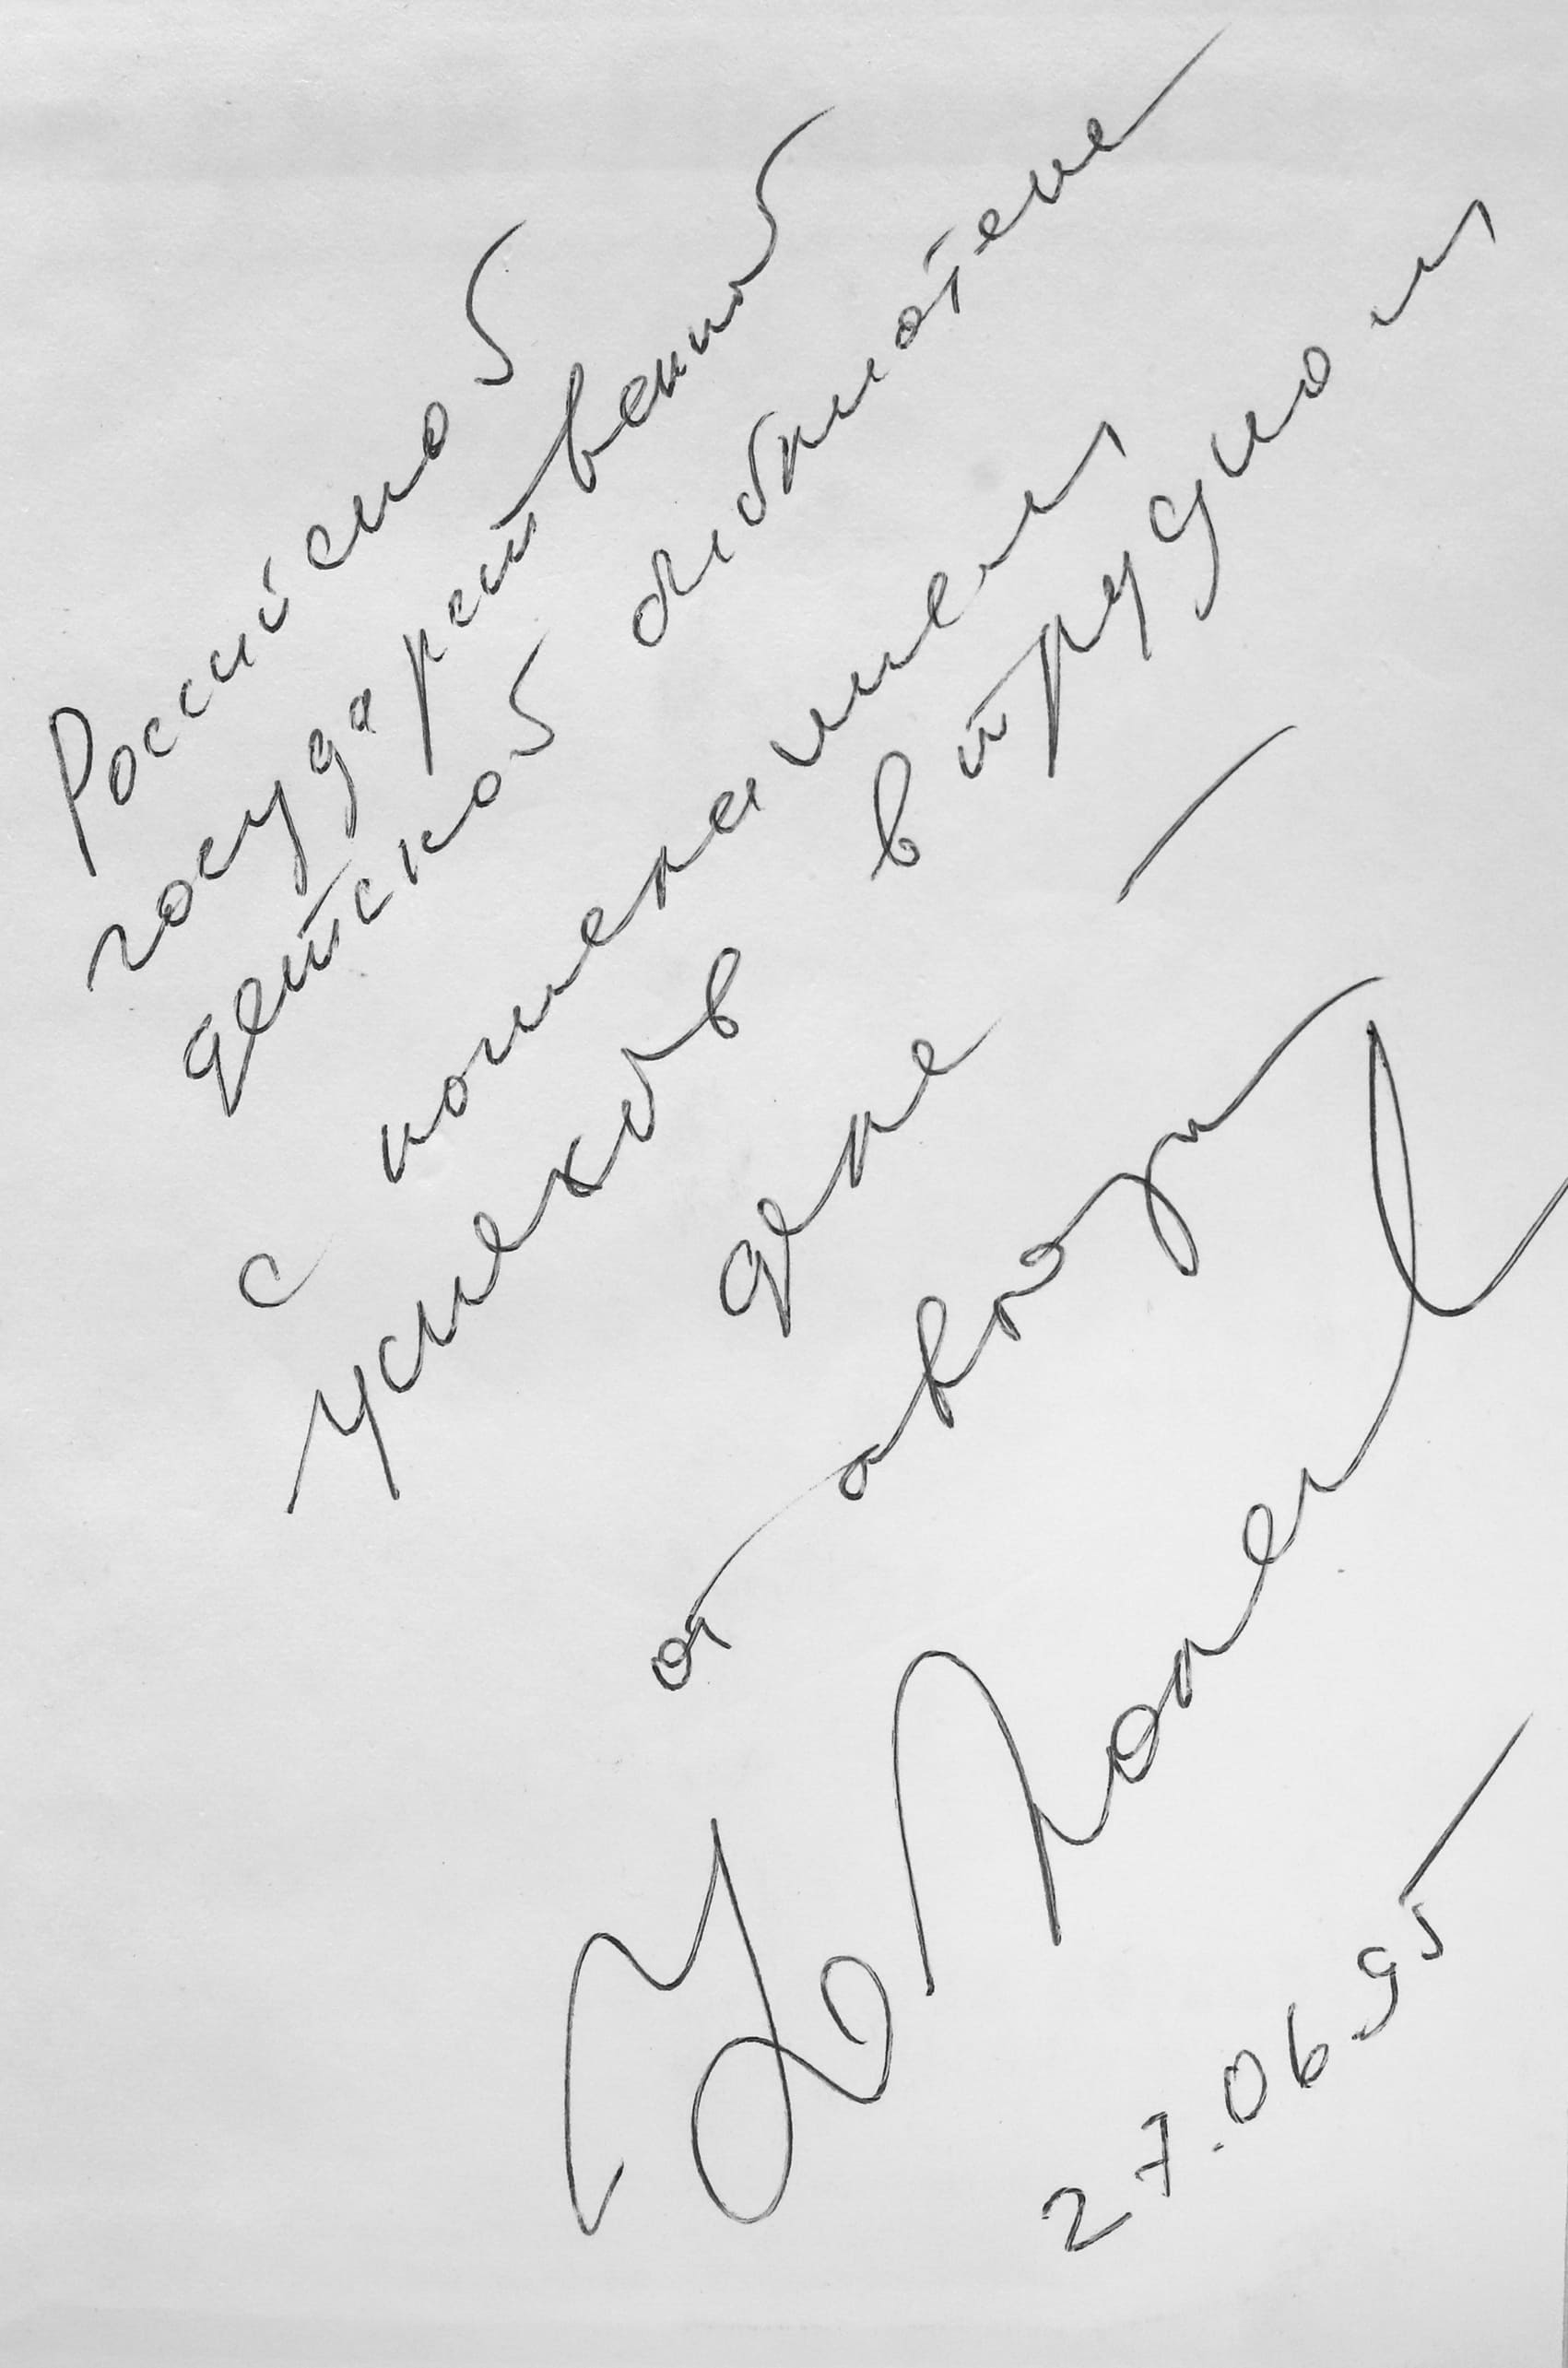 Российской
государственной
детской библиотеке
с пожеланием
успехов в трудном
деле —
от автора
Ю Коваль
27.06.95